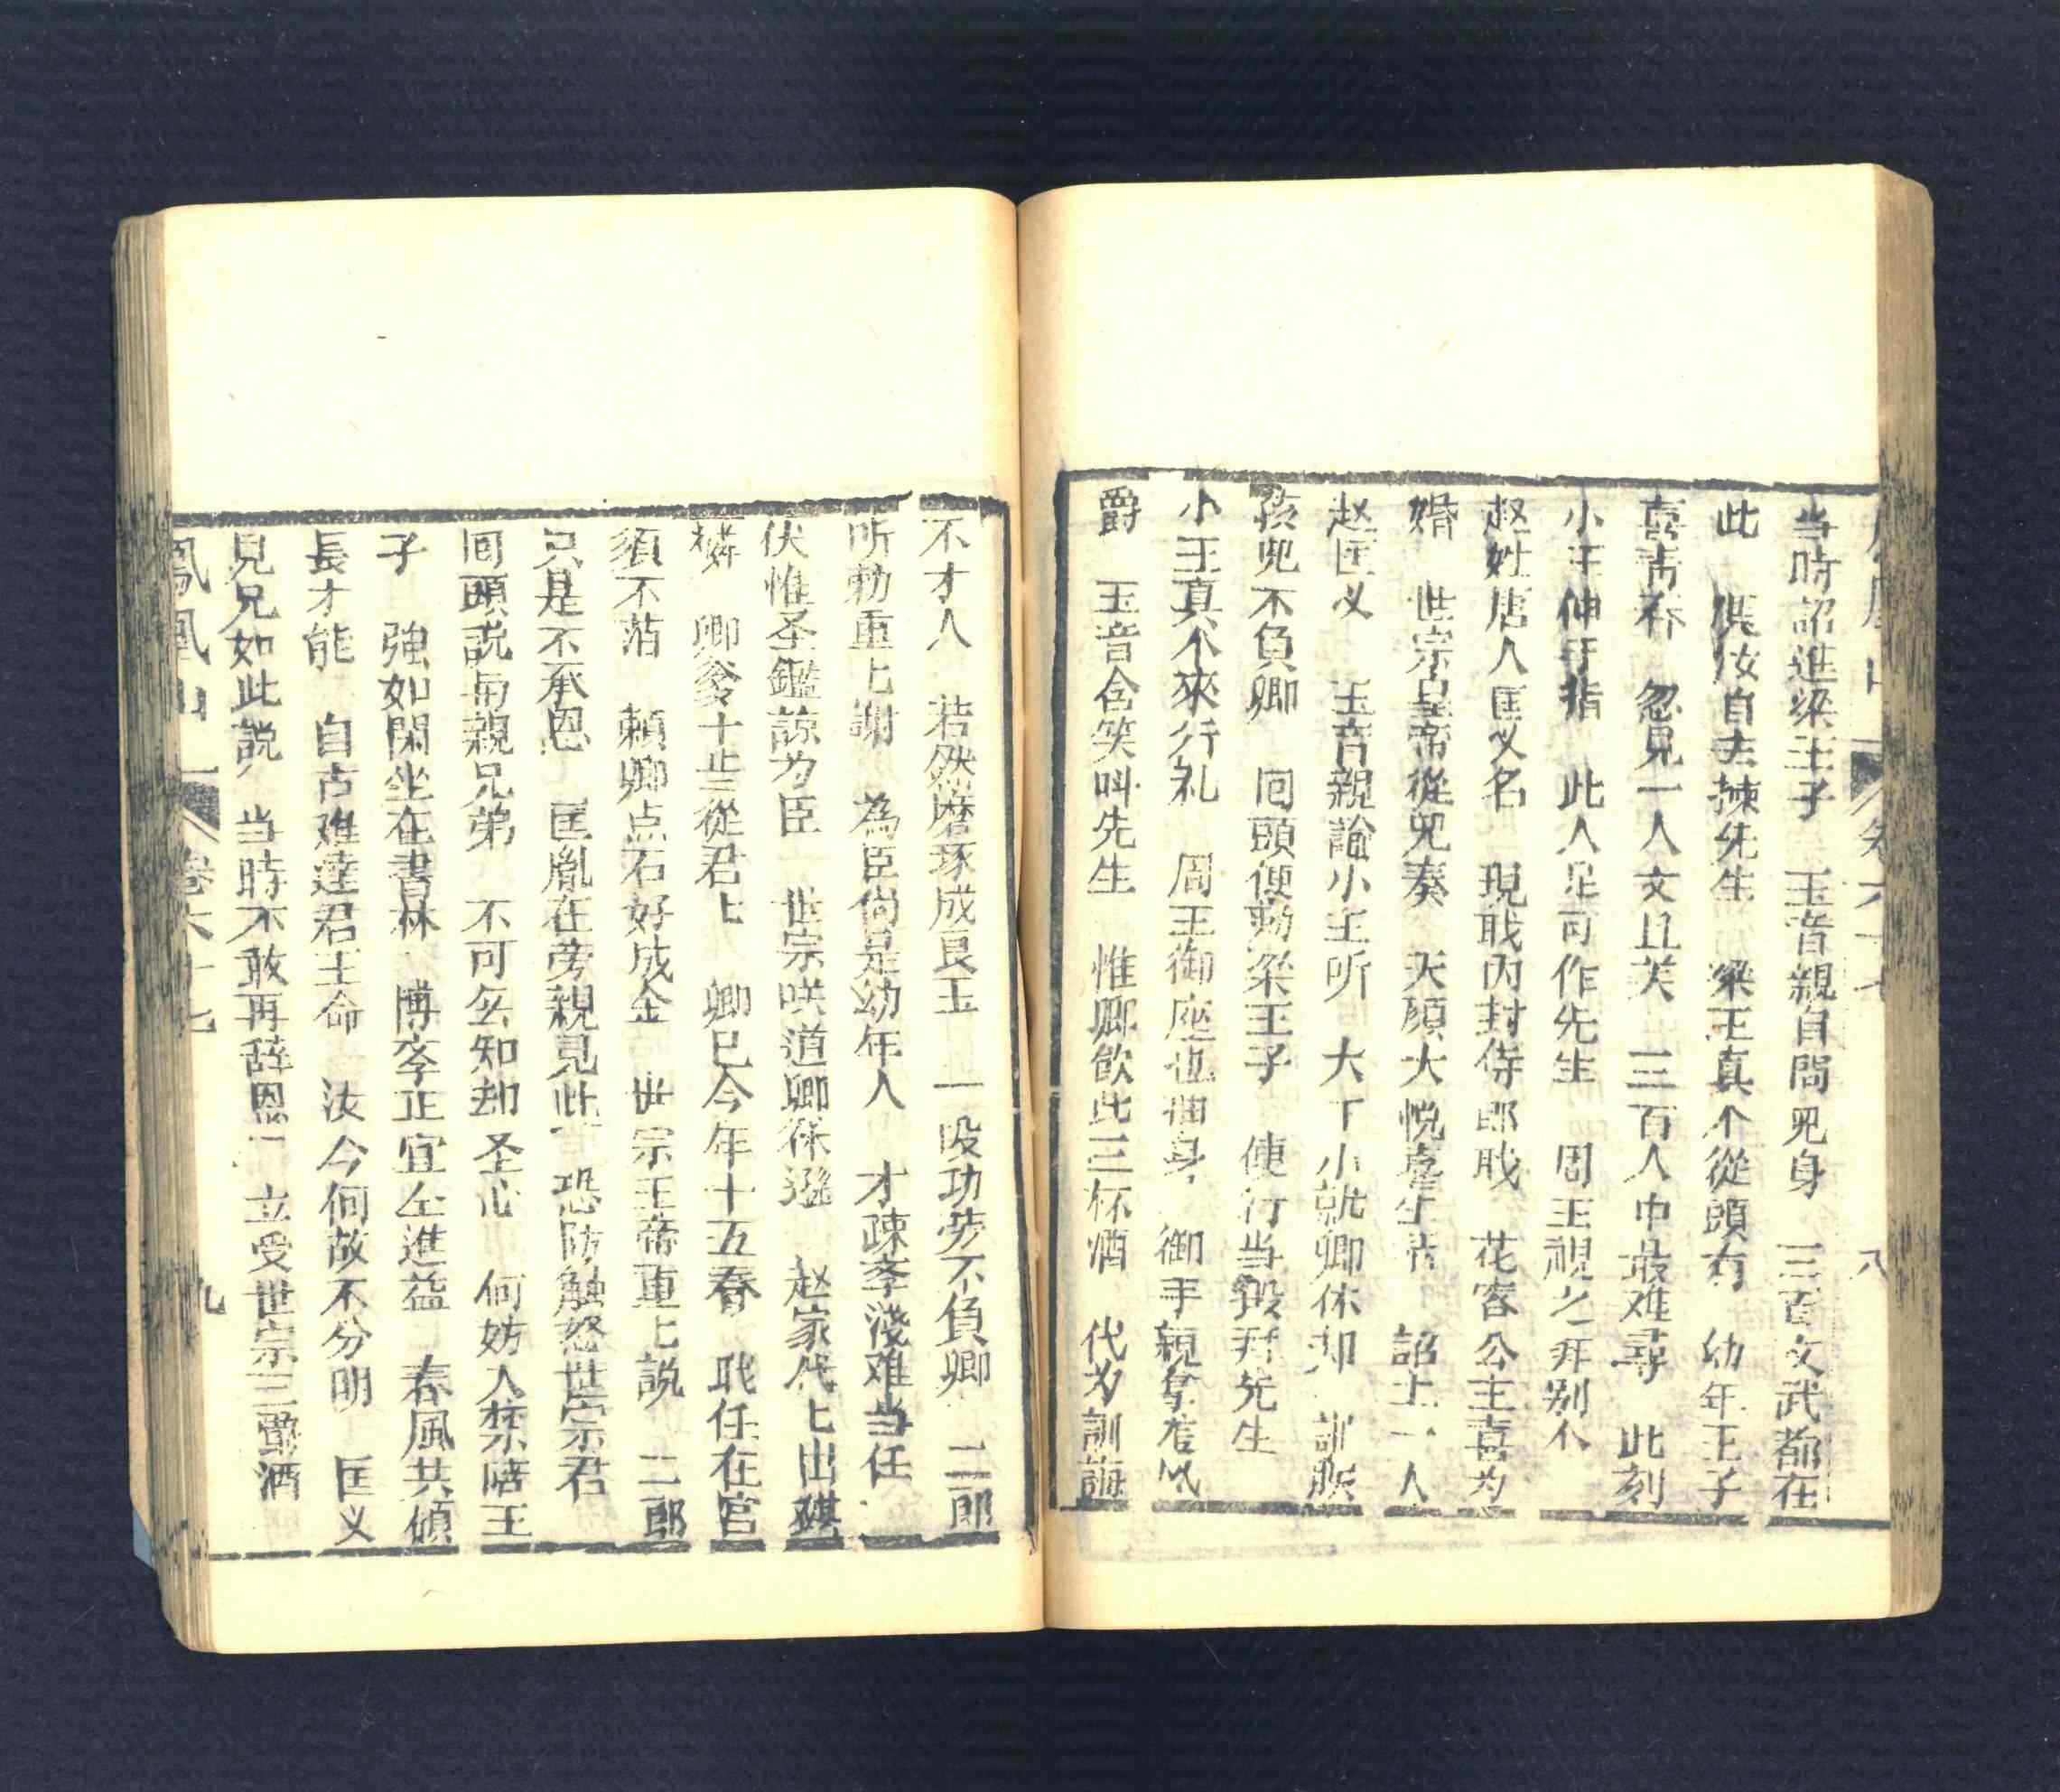 鳳凰山 卷六十七 八
当時詔進梁王子 玉音親自問兒身 三百文武都在
此 憑汝自去揀先生 梁王真个從頭看 幼年王子
喜青春 忽見一人文且美 三百人中最难尋 此刻
小王伸手指 此人足可作先生 周王視之非別个
赵姓唐人匡义名 現耽內封侍郎耽 花容公主喜为
婚 世宗皇帝從兒奏 天顔大悅喜生情 詔上一人
赵匡义 玉音親諭小王听 大下小就卿休却 訓朕
孩兒不負卿 囘頭便勅梁王子 便行当殿拜先生
小王真个來行礼 周王御座也抽身 御手親拿
爵 玉音含笑呌先生 惟卿飲此三杯酒 代为訓誨
不才人 若然磨琢成良玉 一段功劳不負卿 二郎
听勅重上謝 為臣尙是幼年人 才疎孝淺难当任
伏惟圣鑑諒为臣 世宗咲道卿休遜 赵家代上出麒
麟 卿爹十三從君上 卿已今年十五春 耽任在官
須不落 頼卿点石好成金 世宗王帝重上説 二郎
只是不承恩 匡胤在旁親見此 恐防触怒世宗君
囘頭説与親兄弟 不可公知却圣心 何妨人禁啓王
子 強如閑坐在書林 博孝正宜仝進益 春風共傾
長才能 自古难違君王命 汝今何故不分明 匡义
見兄如此説 当時不敢再辞恩 立受世宗三爵酒
鳳凰山 卷六十七 九